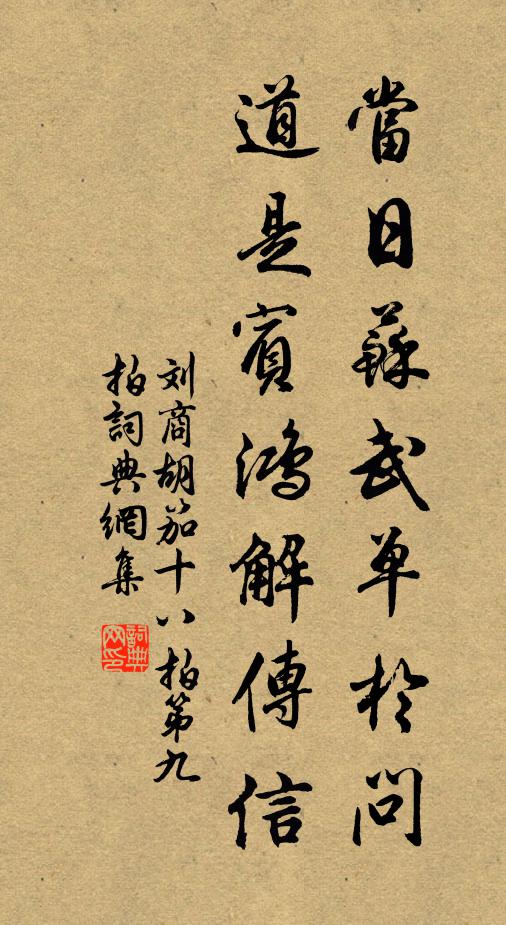 當日蘇武单於問
道是賓鴻解傳信
刘商胡笳十八拍第九
拍詞典網集
詞典
网印